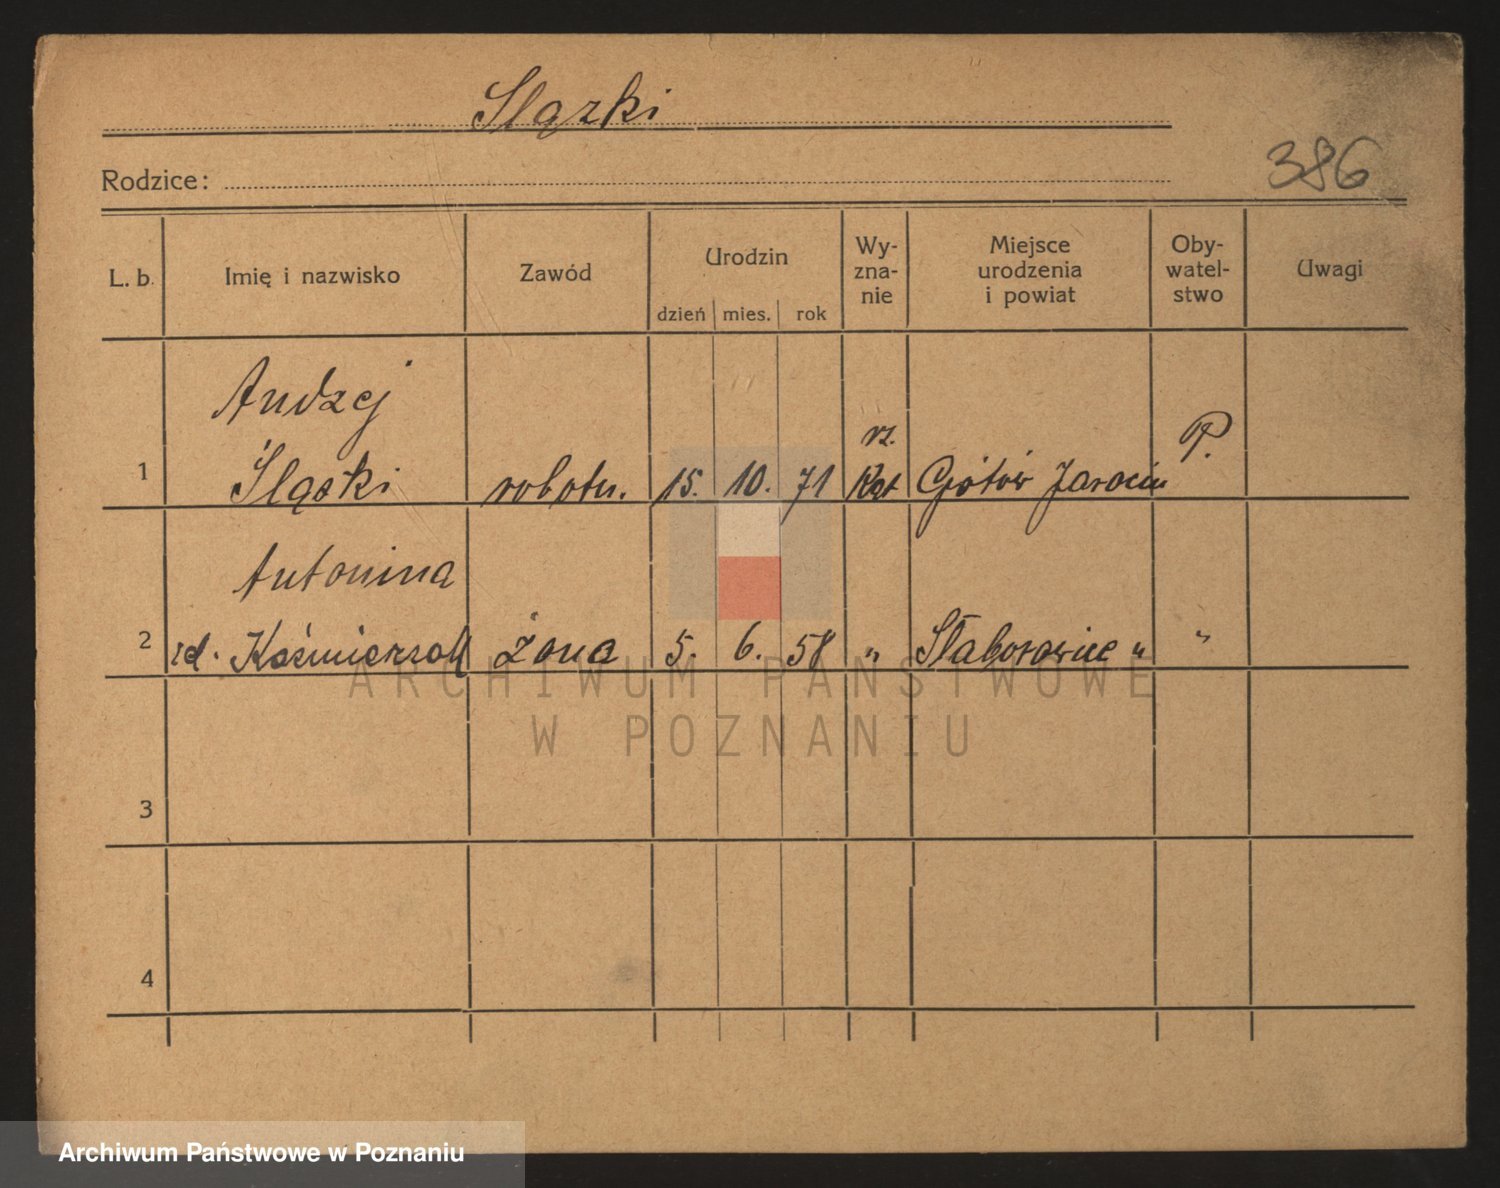 Slązki
Rodzice:
386
L. b. Imię i nazwisko Zawód Urodzin dzień mies. rok Wy-zna-nie Miejsce urodzenia i powiat Oby-watel-stwo Uwagi
Andzej
rz. P.
1 Śląski robotn. 15. 10. 71 Kat Jarocin
Antonina
2 Kaźmierzak żona 5. 6. 58 „ Słaborowice „ „
ARCHIWUM PAŃSTWOWE
W POZNANIU
3
4
Archiwum Państwowe w Poznaniu